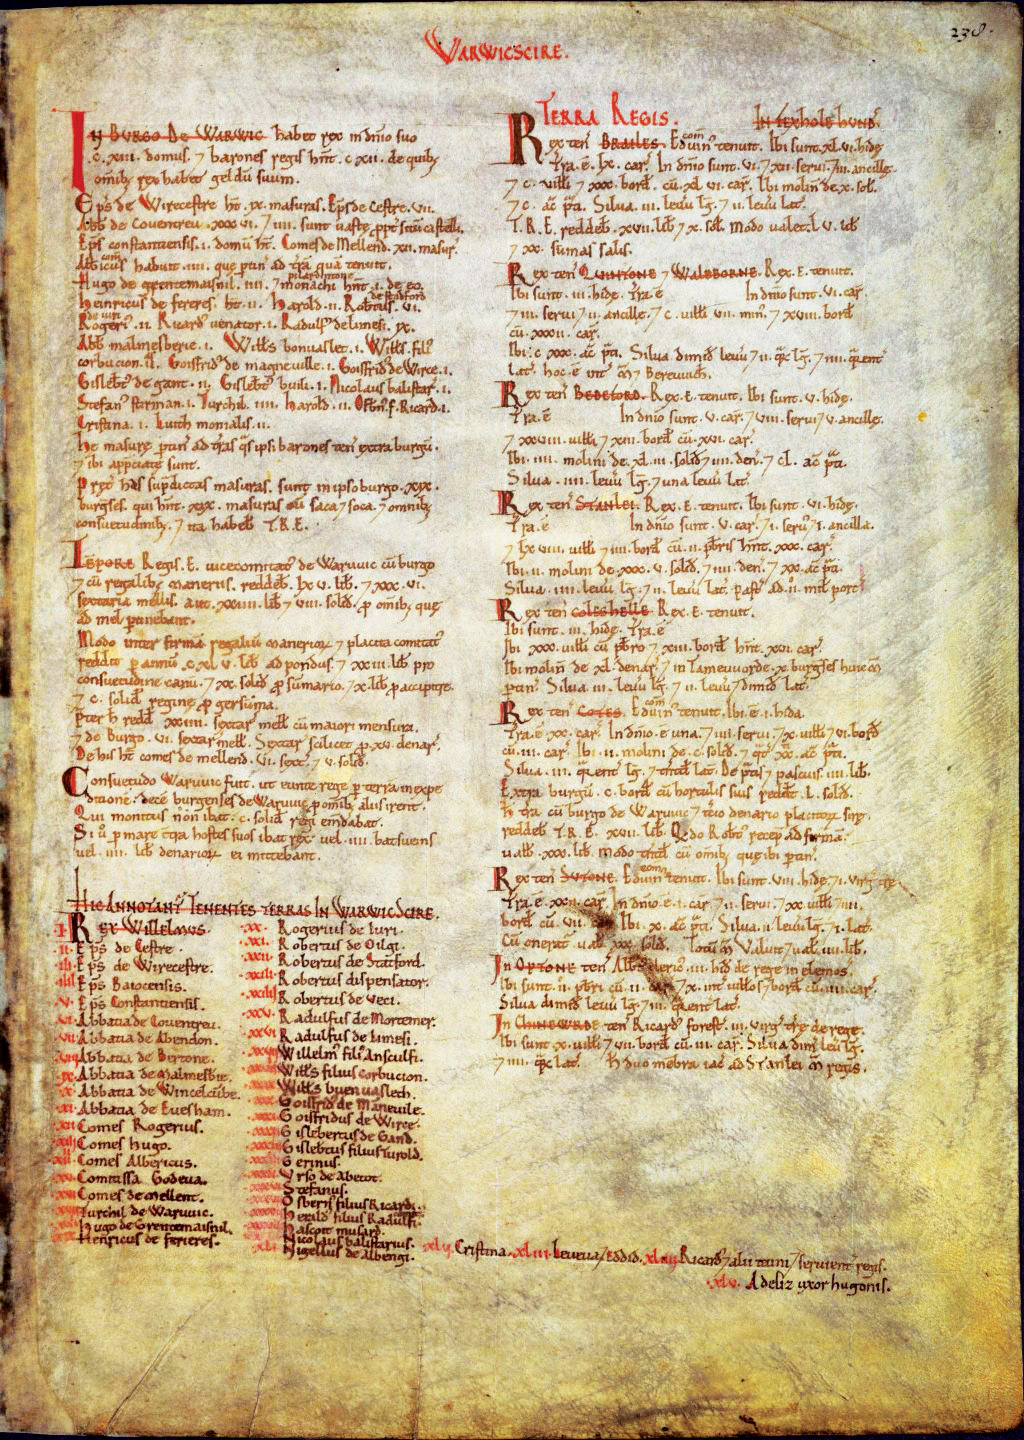 238.
WARWICSCIRE.
IN BURGO DE WARWIC habet rex in dnio suo
.c.xiii. domus. ⁊ barones regis hnt. c xii. de quibȝ
omibȝ rex habet geldū suum.
Eps de Wirecestre ht. ix. masuras. Eps de Cestre. vii.
Abb de Couentreu. xxxvi. ⁊ iiii. sunt uastę ppt situ castelli.
Eps constantiensis. i. domū ht. Comes de Mellend. xii. masur.
Albericus com habuit. iiii. que ptin ad trā quā tenuit.
Hugo de grentemaisnil. iiii. ⁊ monachi pilardintone hnt. i. de eo.
Heinricus de fereres. ht. ii. Harold. ii. Robtus de stadford. vi.
Rogeri de iuri. ii. Ricard uenator. i. Radulf de limesi. ix.
Abb malmesberie. i. Wills bonuaslet. i. Wills fili
corbucion. ii. Goisfrid de magneuille. i. Goisfrid de Wirce. i.
Gislebt de gant. ii. Gislebt buili. i. Nicolaus balistar. i.
Stefan stirman. i. Turchil. iiii. Harold. ii. Osbn. f. Ricard. i.
Cristina. i. Luith monialis. ii.
He masurę ptin ad tras qs ipsi barones ten extra burgū.
⁊ ibi appciatę sunt.
Pret has supdictas masuras. sunt in ipso burgo. xix.
burgses. qui hnt. xix. masuras cū saca ⁊ soca. ⁊ omnibȝ
consuetudinibȝ. ⁊ ita habeb T.R.E.
TEMPORE Regis. E. uicecomitat de Waruuic cū burgo
⁊ cū regalibȝ maneriis. reddeb. lx v. lib. ⁊ xxx. vi.
sextaria mellis. aut. xxiiii. lib ⁊ viii. solid. p omibȝ que
ad mel ptinebant.
Modo inter firmā regaliū maneriorꝝ ⁊ placita comitat
reddit p annū .c.xl v. lib. ad pondus. ⁊ xxiii. lib pro
consuetudine canū. ⁊ xx. solid p sūmario. ⁊ x. lib p accipitre.
⁊ c. solid. reginę p gersūma.
Pter h redd xxiiii. sextar mell cū maiori mensura.
⁊ de Burgo. vi. sextar mell. Sextar scilicet p xv. denar.
De his ht comes de mellend. vi. sext. ⁊ v. solid.
Consuetudo Waruuic fuit. ut eunte rege p terrā in expe
ditione: decē burgenses de Waruuic p omibȝ aliis irent.
Qui monitus non ibat. c. solid regi emdabat.
Si u p mare ctra hostes suos ibat rex. uel. iiii. batsueins
uel. iiii. lib denariorꝝ ei mittebant.
HIC ANNOTANT TENENTES TERRAS IN WARWICSCIRE.
.I. REX WILLELMUS.
.II. Eps de Cestre.
.III. Eps de Wirecestre.
.IIII. Eps Baiocensis.
.V. Eps Constantiensis.
.VI. Abbatia de Couentreu.
.VII. Abbatia de Abendon.
.VIII. Abbatia de Bertone.
.IX. Abbatia de Malmesbie.
.X. Abbatia de Wincelcūbe.
.XI. Abbatia de Euesham.
.XII. Comes Rogerius.
.XIII. Comes Hugo.
Comes Albericus.
Comitissa Godeua.
Comes de Mellent.
Turchil de Waruuic.
Hugo de Grentemaisnil.
Henricus de ferieres.
.XX. Rogerius de Iuri.
.XXI. Robertus de Oilgi.
.XXII. Robertus de Statford.
.XXIII. Robertus dispensator.
.XXIIII. Robertus de Veci.
.XXV. Radulfus de Mortemer.
.XXVI. Radulfus de Limesi.
Willelm fili Ansculfi.
Wills filius Corbucion.
Wills buenuaslech.
Goisfrid de Maneuile.
Goisfridus de Wirce.
Gislebertus de Gand.
Gislebtus filius Turold.
Gerinus.
Vrso de Abetot.
Stefanus.
Osbern filius Ricardi.
Herald filius Radulfi.
Hascoit musard.
Nicolaus balistarius.
Nigellus de Albengi.
Cristina. Leueua ⁊ eddid. Ricard ⁊ alii taini ⁊ seruient regis.
.XLV. Adeliz uxor hugonis.
TERRA REGIS. IN FEXHOLE HUND.
Rex ten BRAILES. Eduin com tenuit. Ibi sunt. xl. vi. hidę
Tra. ē. lx. car. In dnio sunt. vi. ⁊ xii. serui. ⁊ iii. ancillę.
⁊ c. uilli ⁊ xxx. bord. cū. xl vi. car. Ibi molin de x. sol.
⁊ c. ac pti. Silua. iii. leuu lg. ⁊ ii. leuu lat.
T.R.E. reddeb. xvii. lib ⁊ x. sol. Modo ualet. L v. lib
⁊ xx. sūmas salis.
Rex ten QUINTONE ⁊ WALEBORNE. Rex. E. tenuit.
Ibi sunt. iii. hidę. Tra ē In dnio sunt. vi. car.
⁊ iii. serui ⁊ ii. ancille. ⁊ c. uilli vii. min. ⁊ xviii. bord
cū. xxxii. car.
Ibi. c xxx. ac pti. Silua dimid leuu ⁊ ii. qrȝ lg. ⁊ iiii. qrent
lat. Hoc. ē int ⁊ Bereuuich.
Rex ten BEDEFORD. Rex. E. tenuit. Ibi sunt. v. hidę.
Tra. ē In dnio sunt. v. car. ⁊ viii. serui ⁊ v. ancille.
⁊ xxviii. uilli. ⁊ xiii. bord cū. xvi. car.
Ibi. iiii. molini de. xl. iii. solid ⁊ iiii. den. ⁊ cl. ac pti.
Silua. iiii. leuu lg. ⁊ una leuu lat.
Rex ten STANLEI. Rex. E. tenuit. Ibi sunt. vi. hidę.
Tra. ē In dnio sunt. v. car. ⁊ i. seru ⁊ i. ancilla.
⁊ lx viii. uilli ⁊ iiii. bord. cū. ii. pbris hnt. xxx. car.
Ibi. ii. molini de. xxx. v. solid. ⁊ iiii. den. ⁊ xx. ac pti.
Silua. iiii. leuu lg. ⁊ ii. leuu lat. past ad. ii. mil porc
Rex ten COLESHELLE. Rex. E. tenuit.
Ibi sunt. iii. hidę. Tra. ē
Ibi xxx. uilli cū pbro ⁊ xiii. bord hnt. xvi. car.
Ibi molin de xl. denar. ⁊ in Tameuuorde. x. burgses huic
ptin. Silua. iii. leuu lg. ⁊ ii. leuu ⁊ dimid lat.
Rex ten COTES. Eduin com tenuit. Ibi. ē. i. hida.
Tra. ē. xx. car. In dnio. ē una. ⁊ iiii. serui ⁊ x. uilli ⁊ vi. bord
cū. iii. car. Ibi. ii. molini de. c. solid. ⁊ xx. ac pti.
Silua. iii. qrent lg. ⁊ lat. De ptis ⁊ pascuis. iiii. lib.
Extra burgū. c. bord cū hortulis suis reddt. l. solid.
H tra cū burgo de Waruuic ⁊ tcio denario placitorꝝ sirę.
reddeb T.R.E. xvii. lib. Qdo Robt recep ad firmā.
ualb. xxx. lib. modo cū omibȝ que ibi ptin.
Rex ten SUTONE. Eduin com tenuit. Ibi sunt. viii. hidę. ⁊ i. uirg
Tra. ē. xxii. car. In dnio. ē. i. car ⁊ ii. serui. ⁊ xx. uilli ⁊ iiii.
bord cū. vii. Ibi. x. ac pti. Silua. ii. leuu lg. ⁊ i. lat.
Cū onerat. ualb xxx. solid. Totū ualuit ⁊ ual. iiii. lib.
In OPTONE ten Albt cleric. iii. hid de rege in elemos.
Ibi sunt. ii. pbri cū. ii. car. ⁊ x. int uillos ⁊ bord cū. iiii. car.
Silua dimid leuu lg. ⁊ iii. qrent lat.
In CHINEWRDE ten Ricard forest. iii. uirg trę de rege.
Ibi sunt. x. uilli ⁊ vii. bord cū. iii. car. Silua dim leu lg.
⁊ iiii. qrȝ lat. H duo mēbra iac ad STANLEI regis.